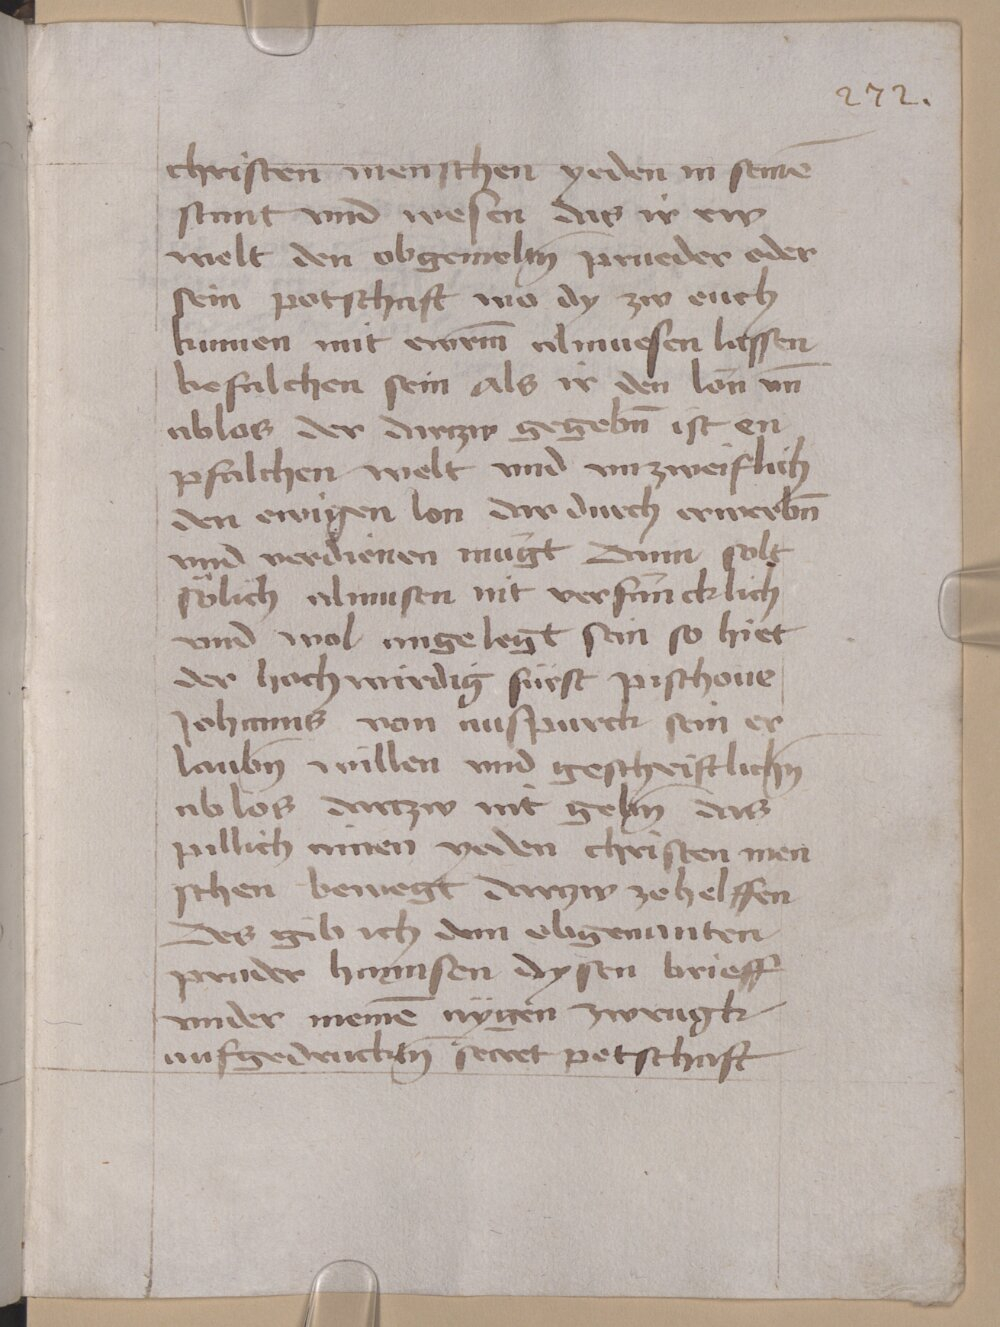 272.
christen menschen yeden in seinē
stant vnd wesen das ir ew
welt den obgemeltn̄ prueder oder
sein potschaft wo dy zw euch
kumen mit ewrem̄ almuesen lassen
befalchen sein Als ir den lon vn̄
ablos der dartzw gegebn̄ ist en
pfalchen welt vnd vnzweiflich
den ewigen lon dar durch erwerbn̄
vnd verdienen mügt Dann solt
sölich almusen nit verfäncklich
vnd wol angelegt sein so hiet
der hochwirdig fürst pischoue
Johanns von auspurck sein er
laubn̄ willen vnd geschriftlichn̄
ablos dartzw nit gebn̄ das
pillich ainen yeden christen men
schen bewegt dartzw zehelffen
Des gib ich dem obgenanten
pruder hannsen dysen brieff
vnder meinē aÿgen zwrugk
aufgedrucktn̄ secret potschaft